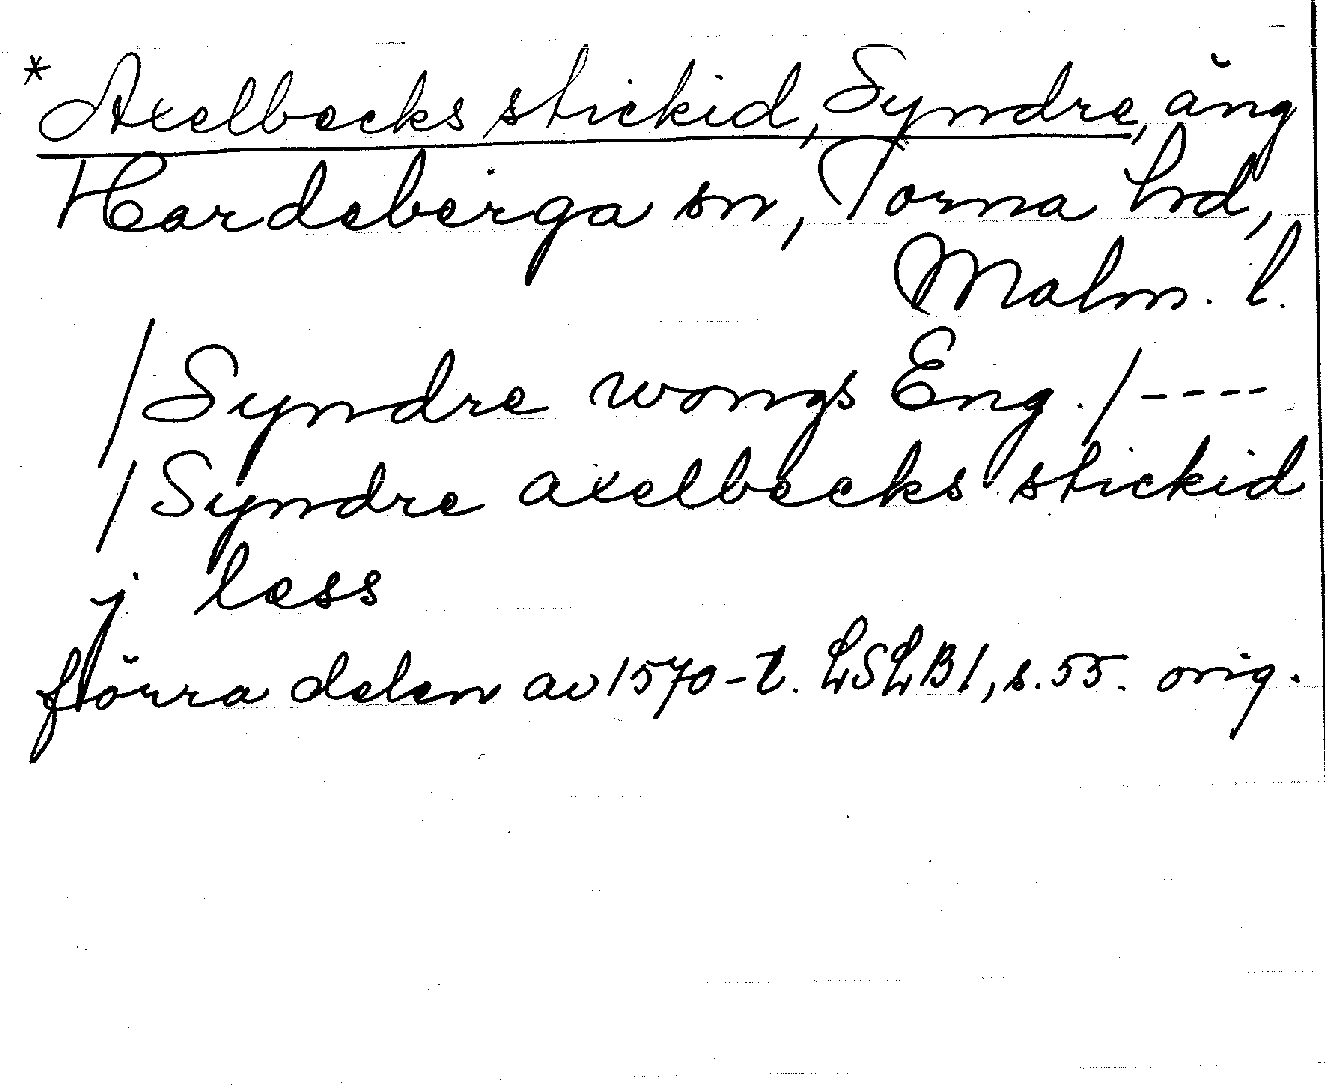 * Axelbecks stickid, Syndre, äng
Hardeberga sn, Torna hrd,
Malm. l.
/Syndre wongs Eng./----
/Syndre axelbecks stickid
j less
förra delen av 1570-t. LSLB1, s.55. orig.